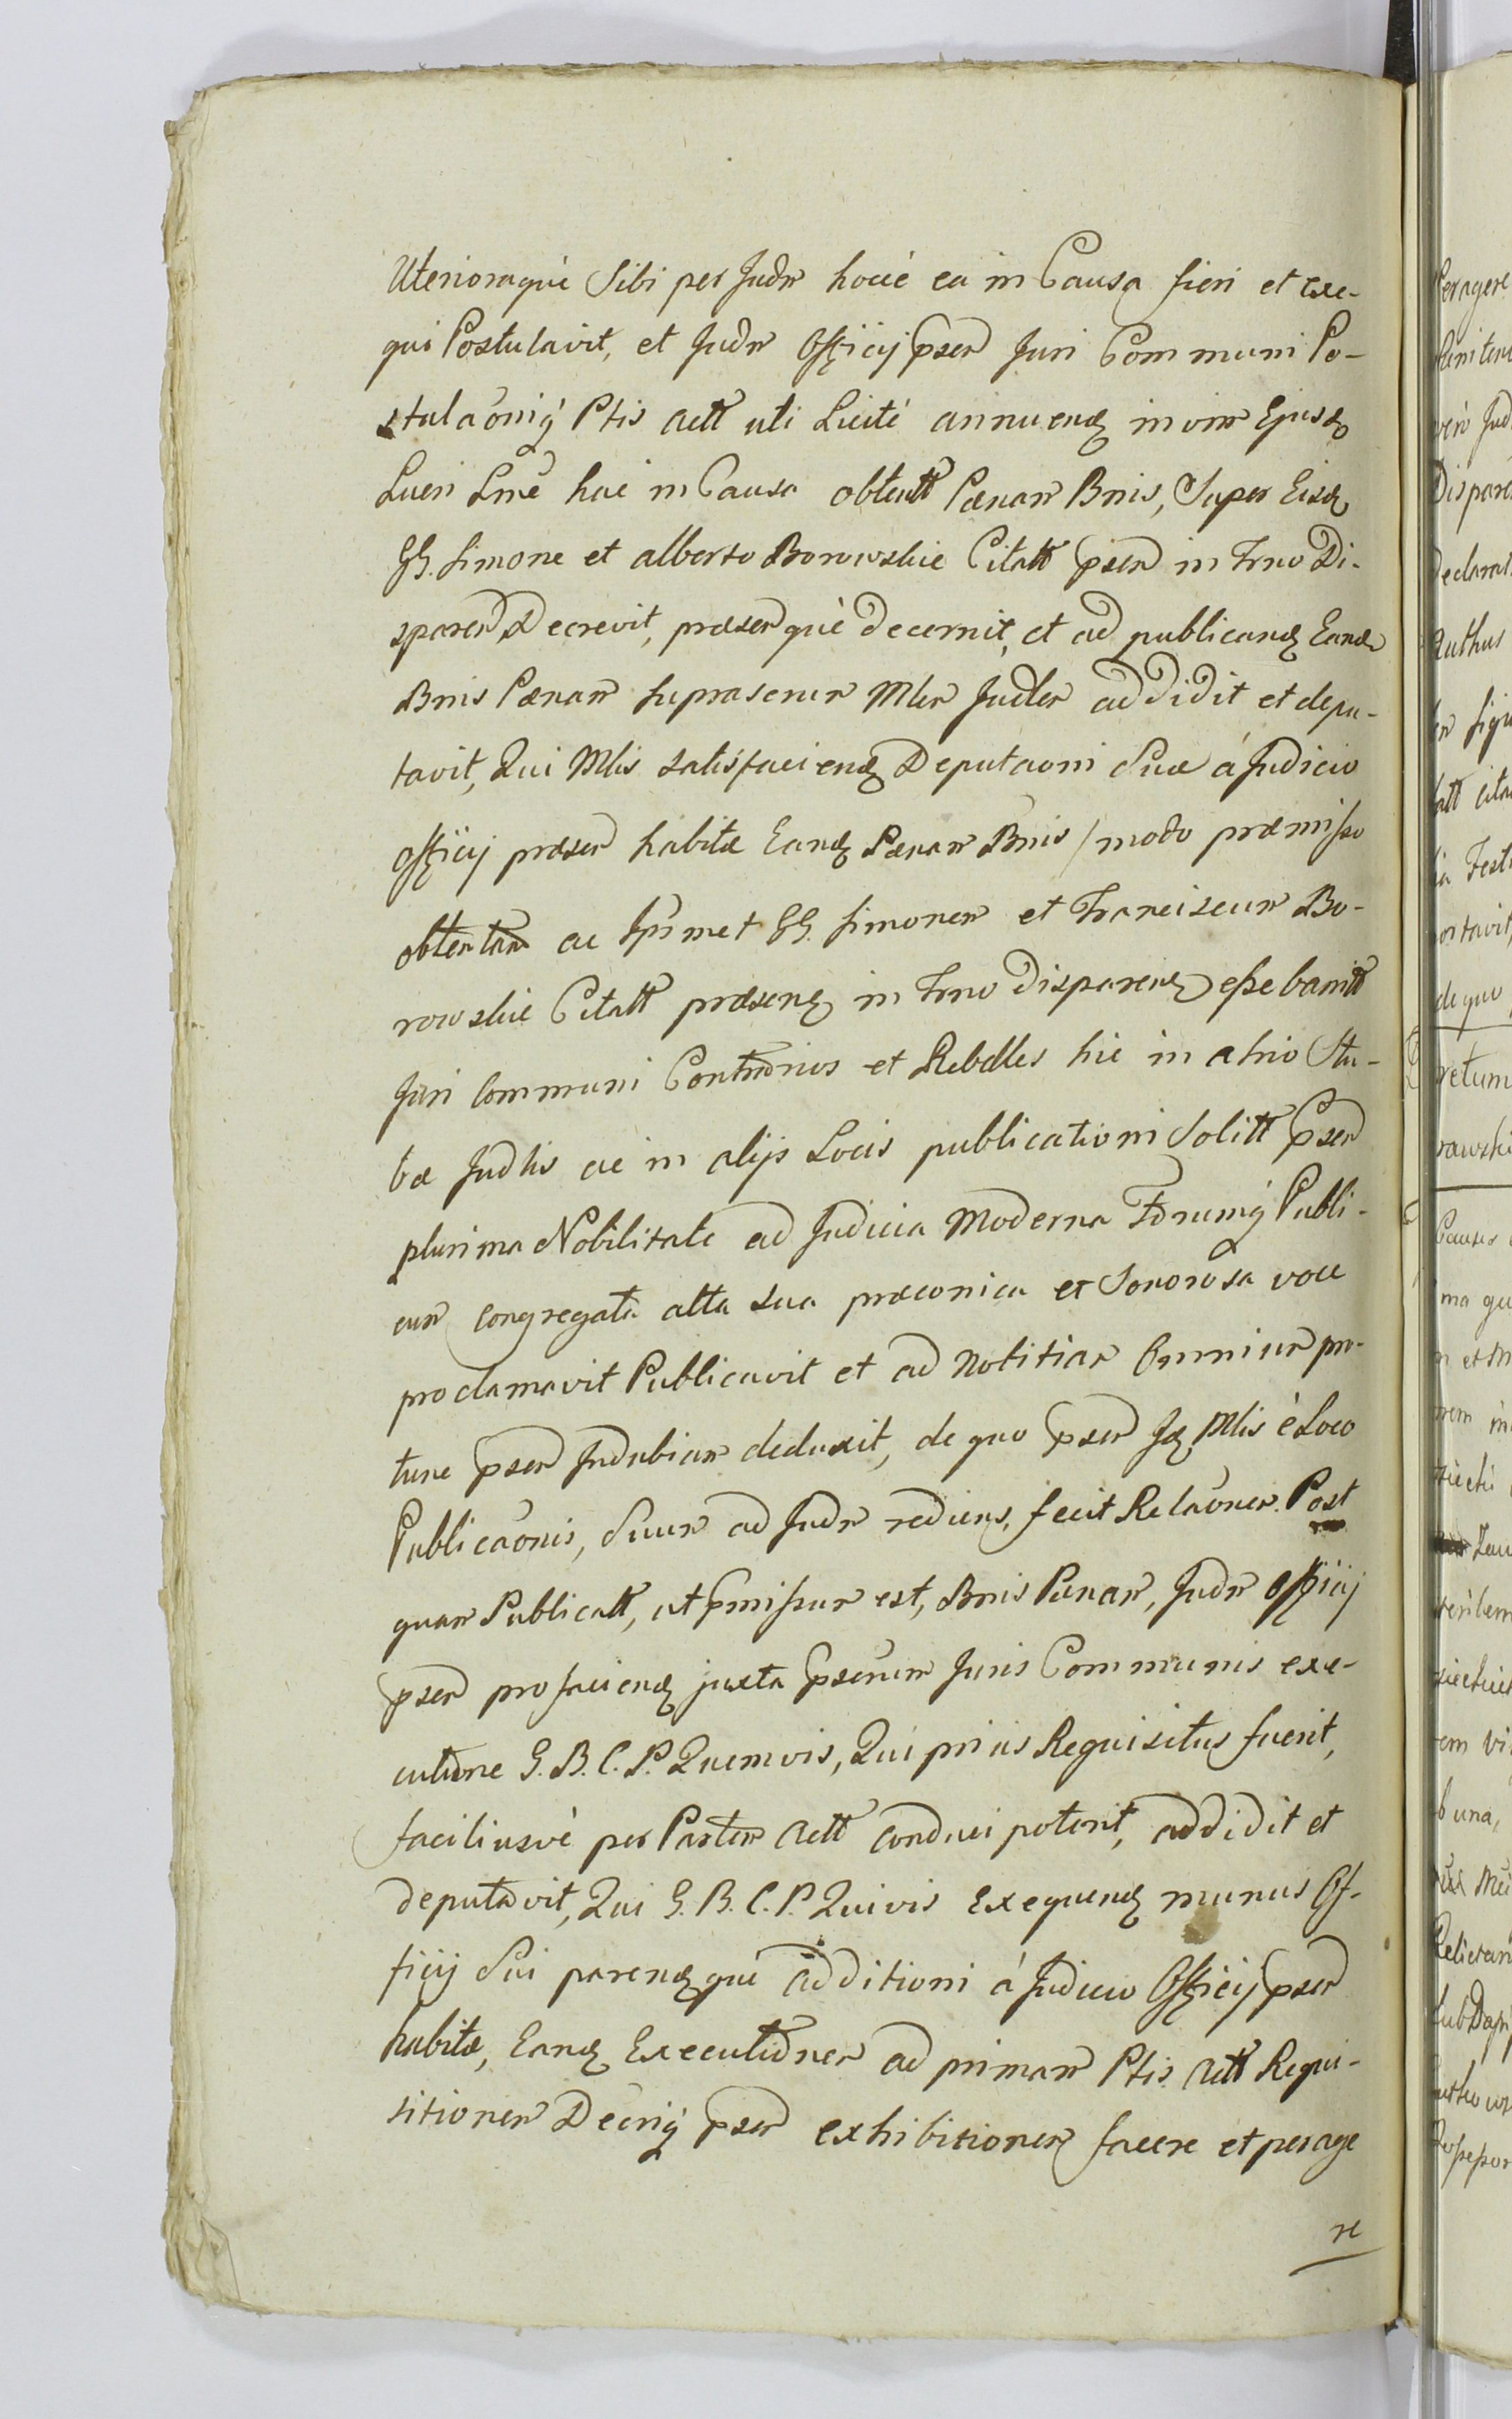 Ulterioraquè Sibi per Judm hocce ea in Causa fieri et exe-
qui Postulavit, et Judm Officij pser Juri Communi Po-
stulaõniq Ptis Actt uti Licitè annuend in vim Ejusd
Lucri Lmẽ hac in Causa obtentt Pænam Bnis, Super Eisd
GG. Simone et Alberto Borowskie Citatt pser in Trno Di-
sparen Decrevit, præsen què decernit, et ad publicand Eand
Bnis Pænam suprascrium Mlem Judlem addidit et depu-
tavit, Qui Mlis satisfaciend Deputaoni Suæ á Judicio
Officij præsen habitæ Eand Pænam Bnis / modo præmisso
obtentam ac Ipsmet GG. Simonem et Franciscum Bo-
rowskie Citatt præsend in Trno Disparend esse bannitt
Juri Communi Contrarios et Rebelles hic in atrio Stu-
bæ Judlis ac in alijs Locis publicationi Solitt pser
plurima Nobilitate ad Judicia Moderna Forumq Publi-
cum Congregata alta sua præconica et Sonorosa voce
proclamavit Publicavit et ad Notitiam Omnium pro-
tunc pser Indubiam deduxit, de quo pser Jd Mlis è Loco
Publicaõnis, Suum ad Judm rediens, fecit Relaõnem. Post
quam Publicatt, ut pmissum est, Bnis Pænam, Judm Officij
pser pro faciend juxta pserum Juris Communis exe-
cutione G. B. C. P. Quemvis, Qui prius Requisitus fuerit,
faciliusvè per Partem Actt conduci poterit, addidit et
deputavit, Qui G. B. C. P. Quivis Exequend munus Of-
ficij Sui parendquè additioni á Judicio Officij pser
habitæ, Eand Executionem ad primam Ptis Actt Requi-
sitionem Decriq pser exhibitionem facere et perage
re